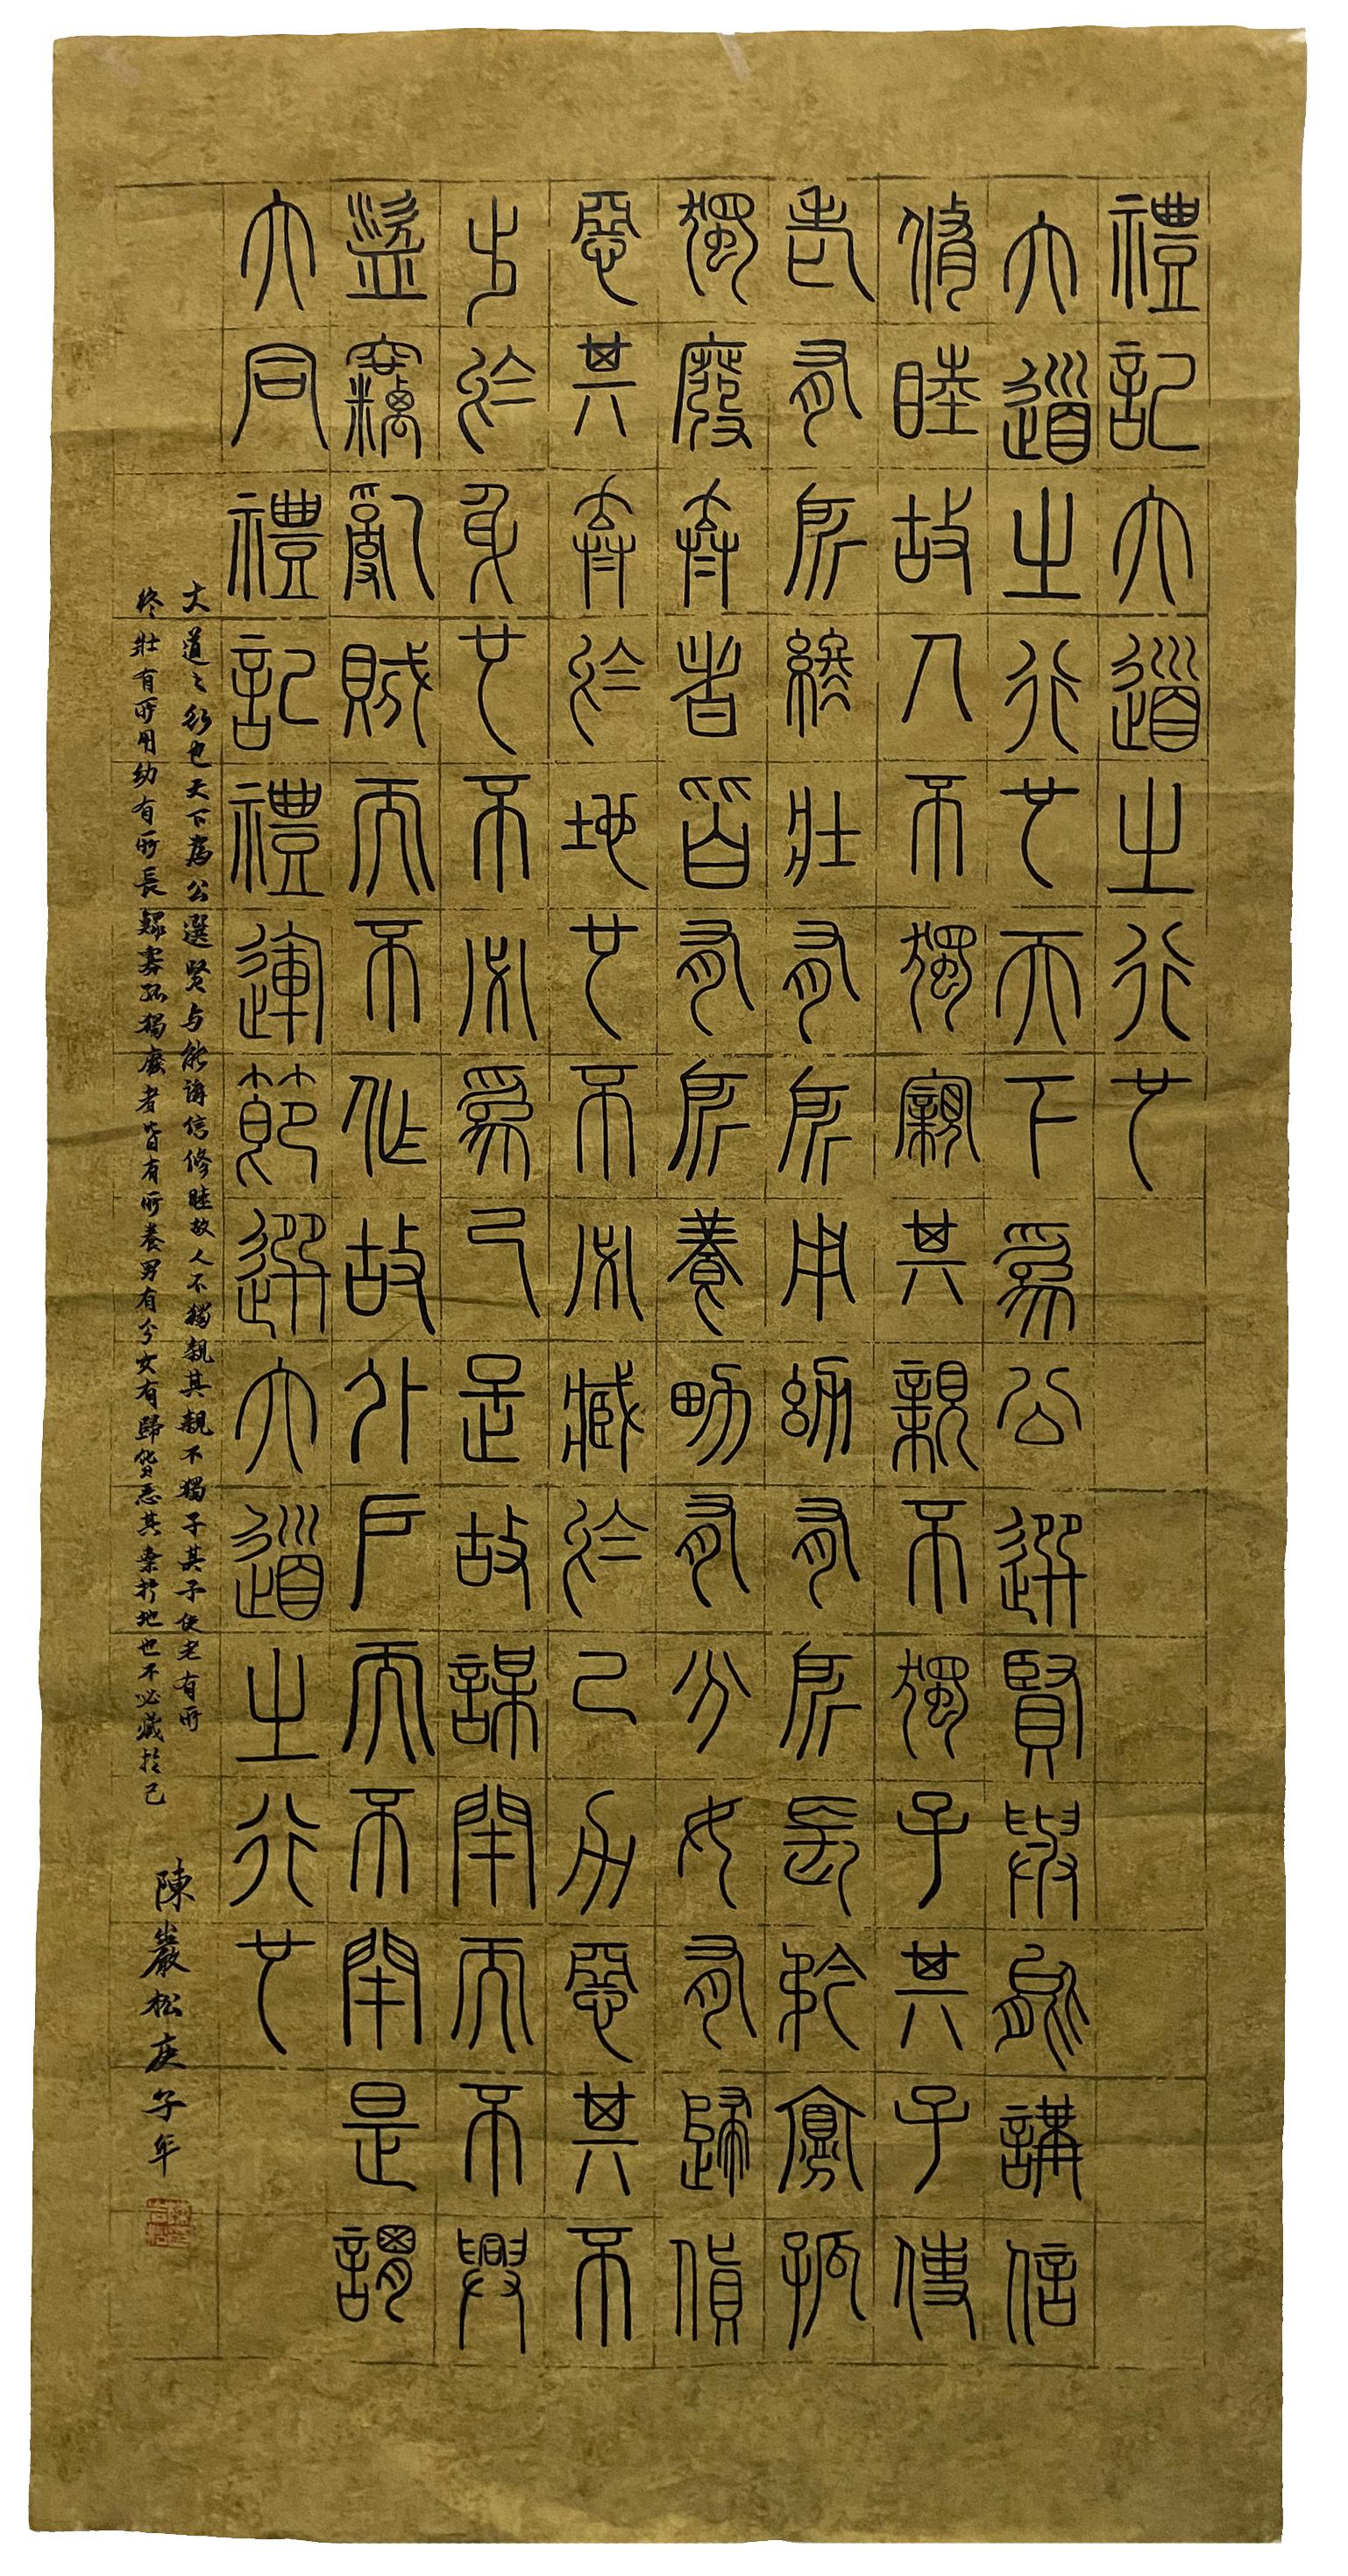 禮記大道之行也
大道之行也天下爲公選賢與能講信
脩睦故人不獨親其親不獨子其子使
老有所終壯有所用幼有所長矜寡孤
獨廢疾者皆有所養男有分女有歸貨
惡其棄於地也不必藏於己力惡其不
出於身也不必爲己是故謀閉而不興
盜竊亂賊而不作故外戶而不閉是謂
大同禮記禮運節選大道之行也
大道之行也天下為公選賢与能講信修睦故人不獨親其親不獨子其子使老有所
終壯有所用幼有所長鰥寡孤獨廢者皆有所養男有分女有歸貨惡其棄於地也不必藏於己
陳巖松庚子年